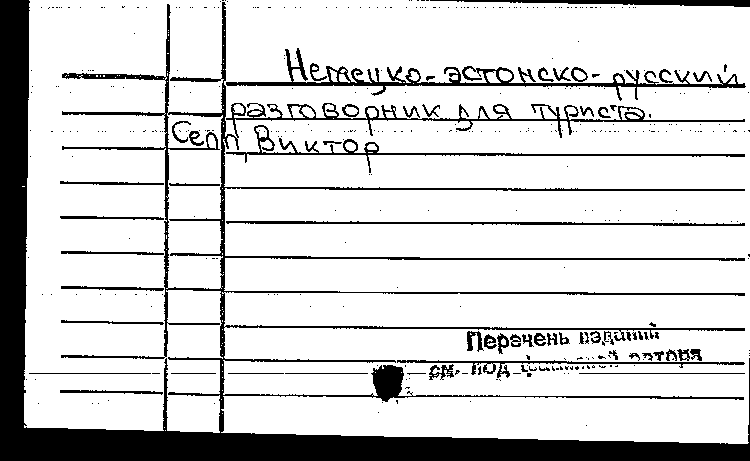 Немецко-эстонско-русский
разговорник для туриста.
Сепп, Виктор
Перечень изданий
см. под фамилией автора